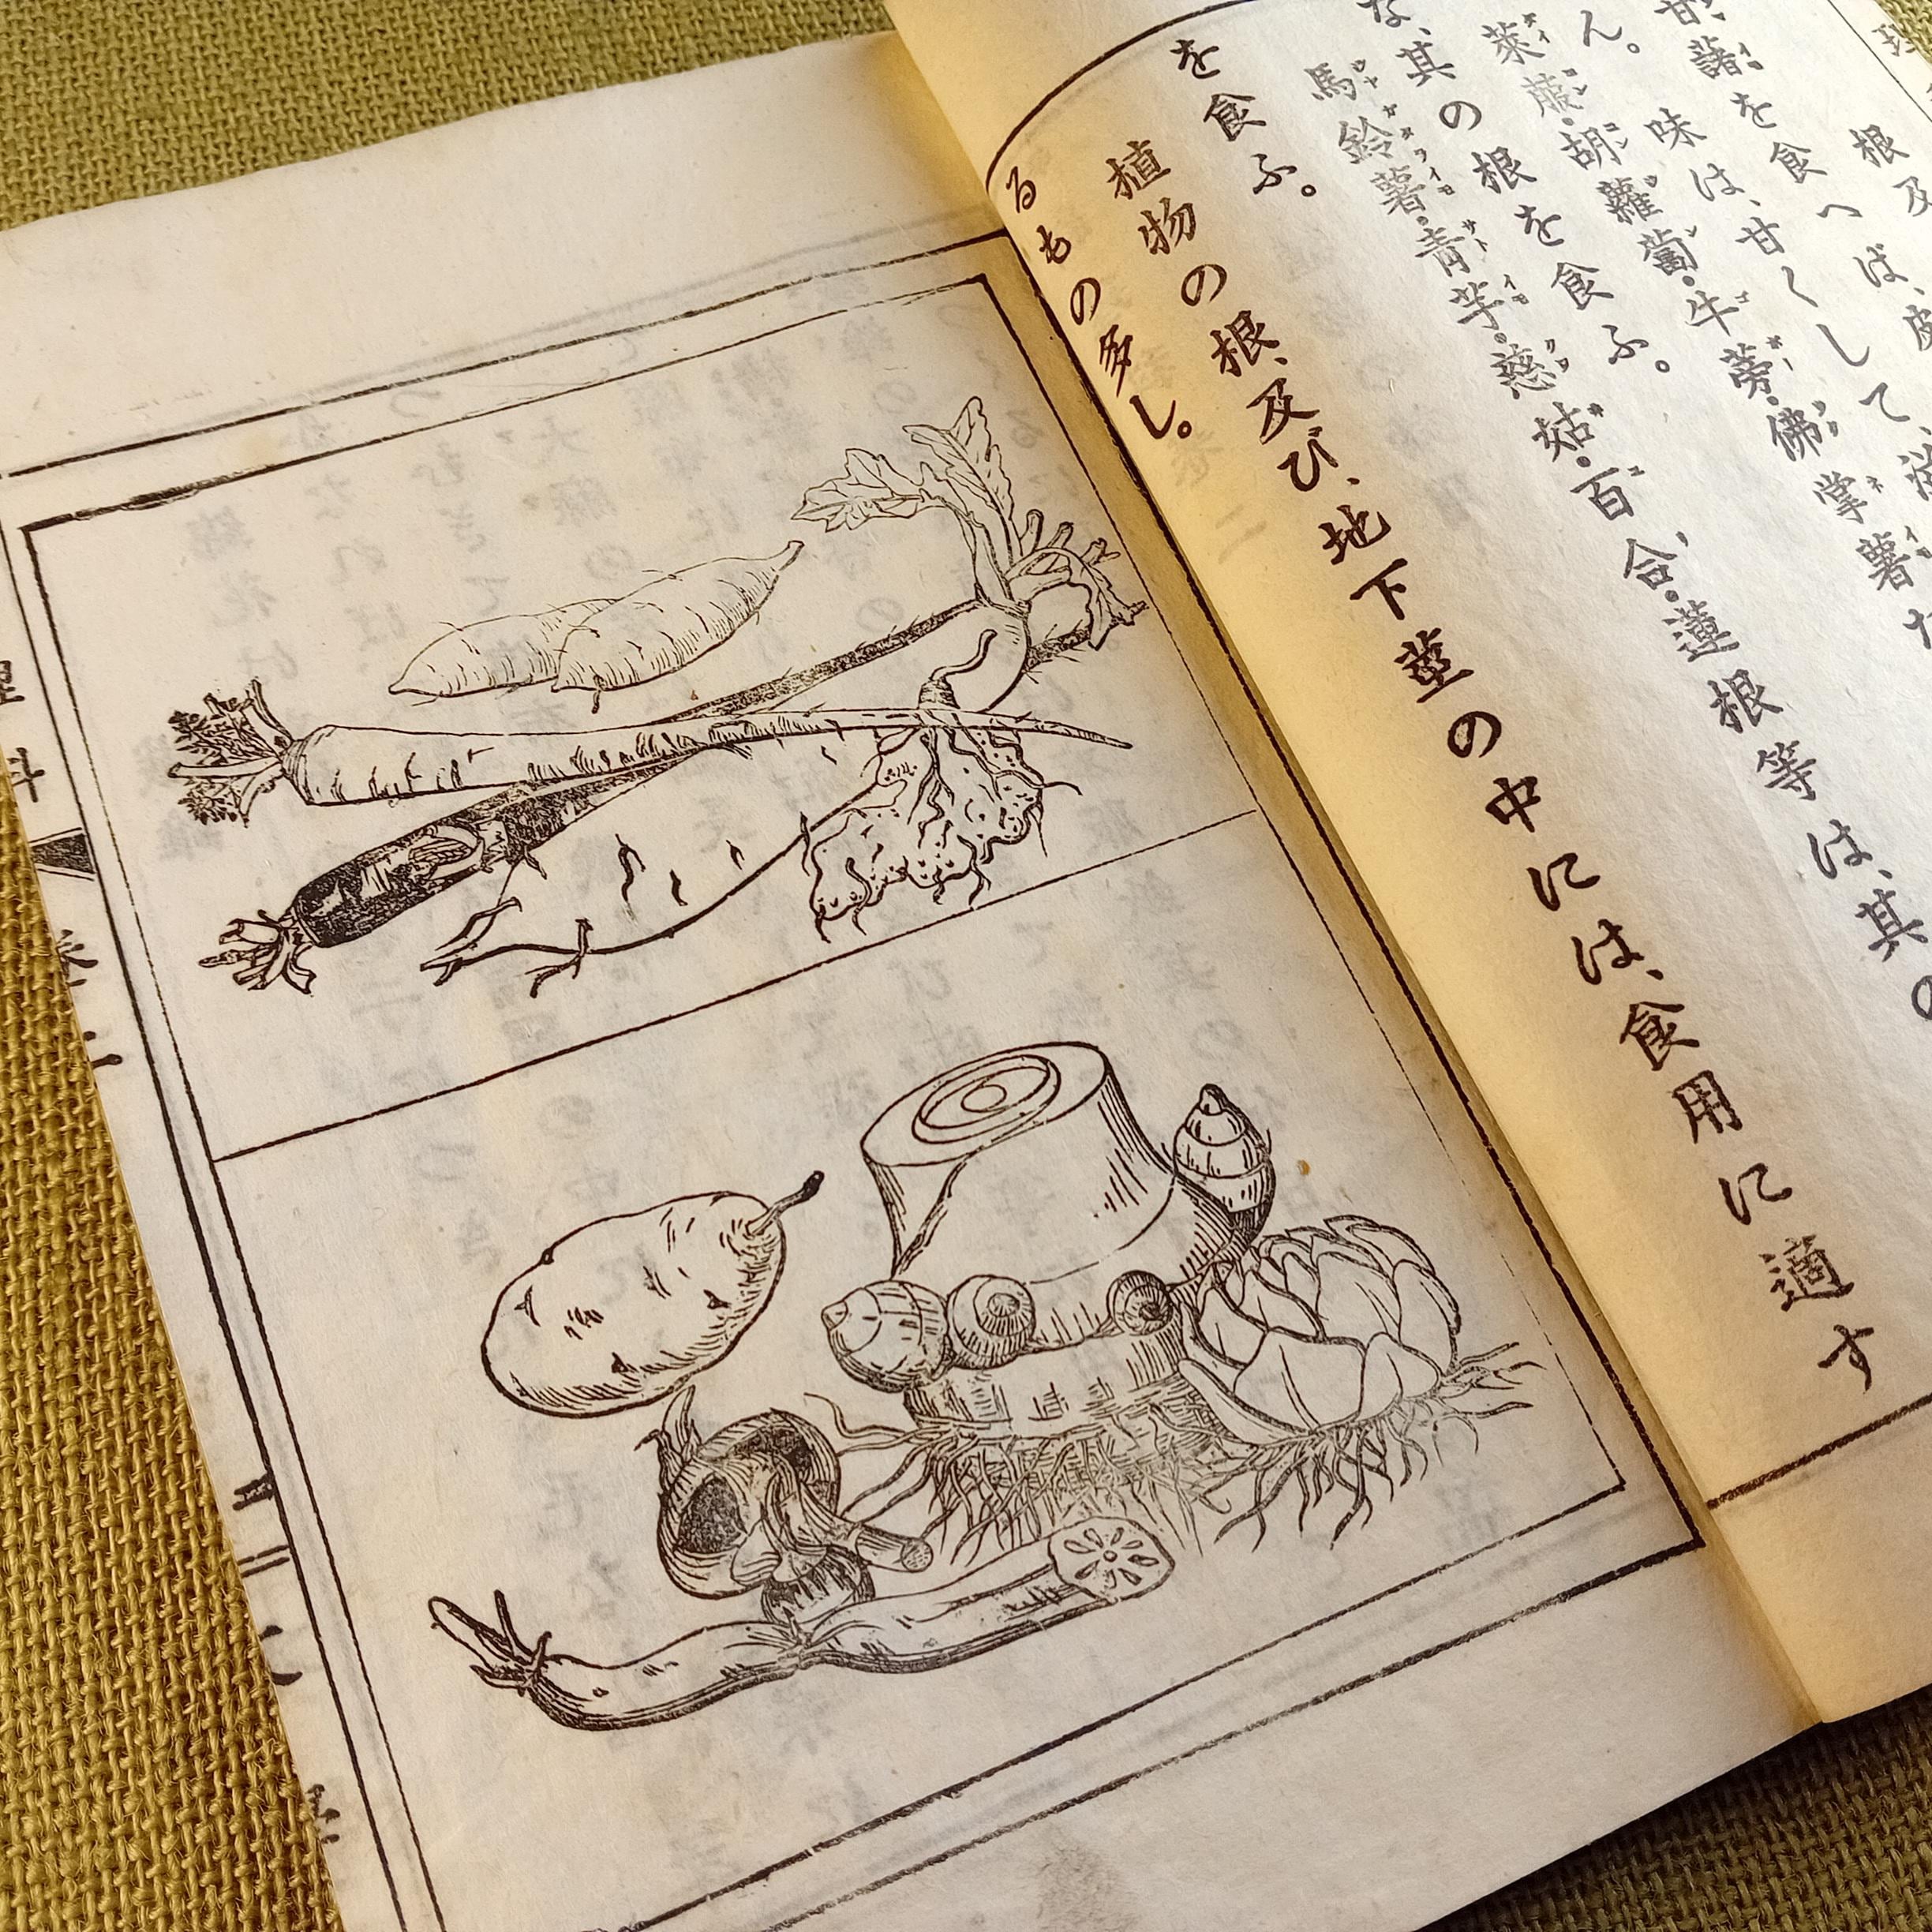 根及
甘藷を食へば、皮
ん。味は、甘くして、
萊菔・胡蘿蔔・牛蒡・佛掌薯
な、其の根を食ふ。
馬鈴薯・青芋・慈姑・百合・蓮根等は、其の
を食ふ。
植物の根、及び、地下莖の中には、食用に適す
るもの多し。